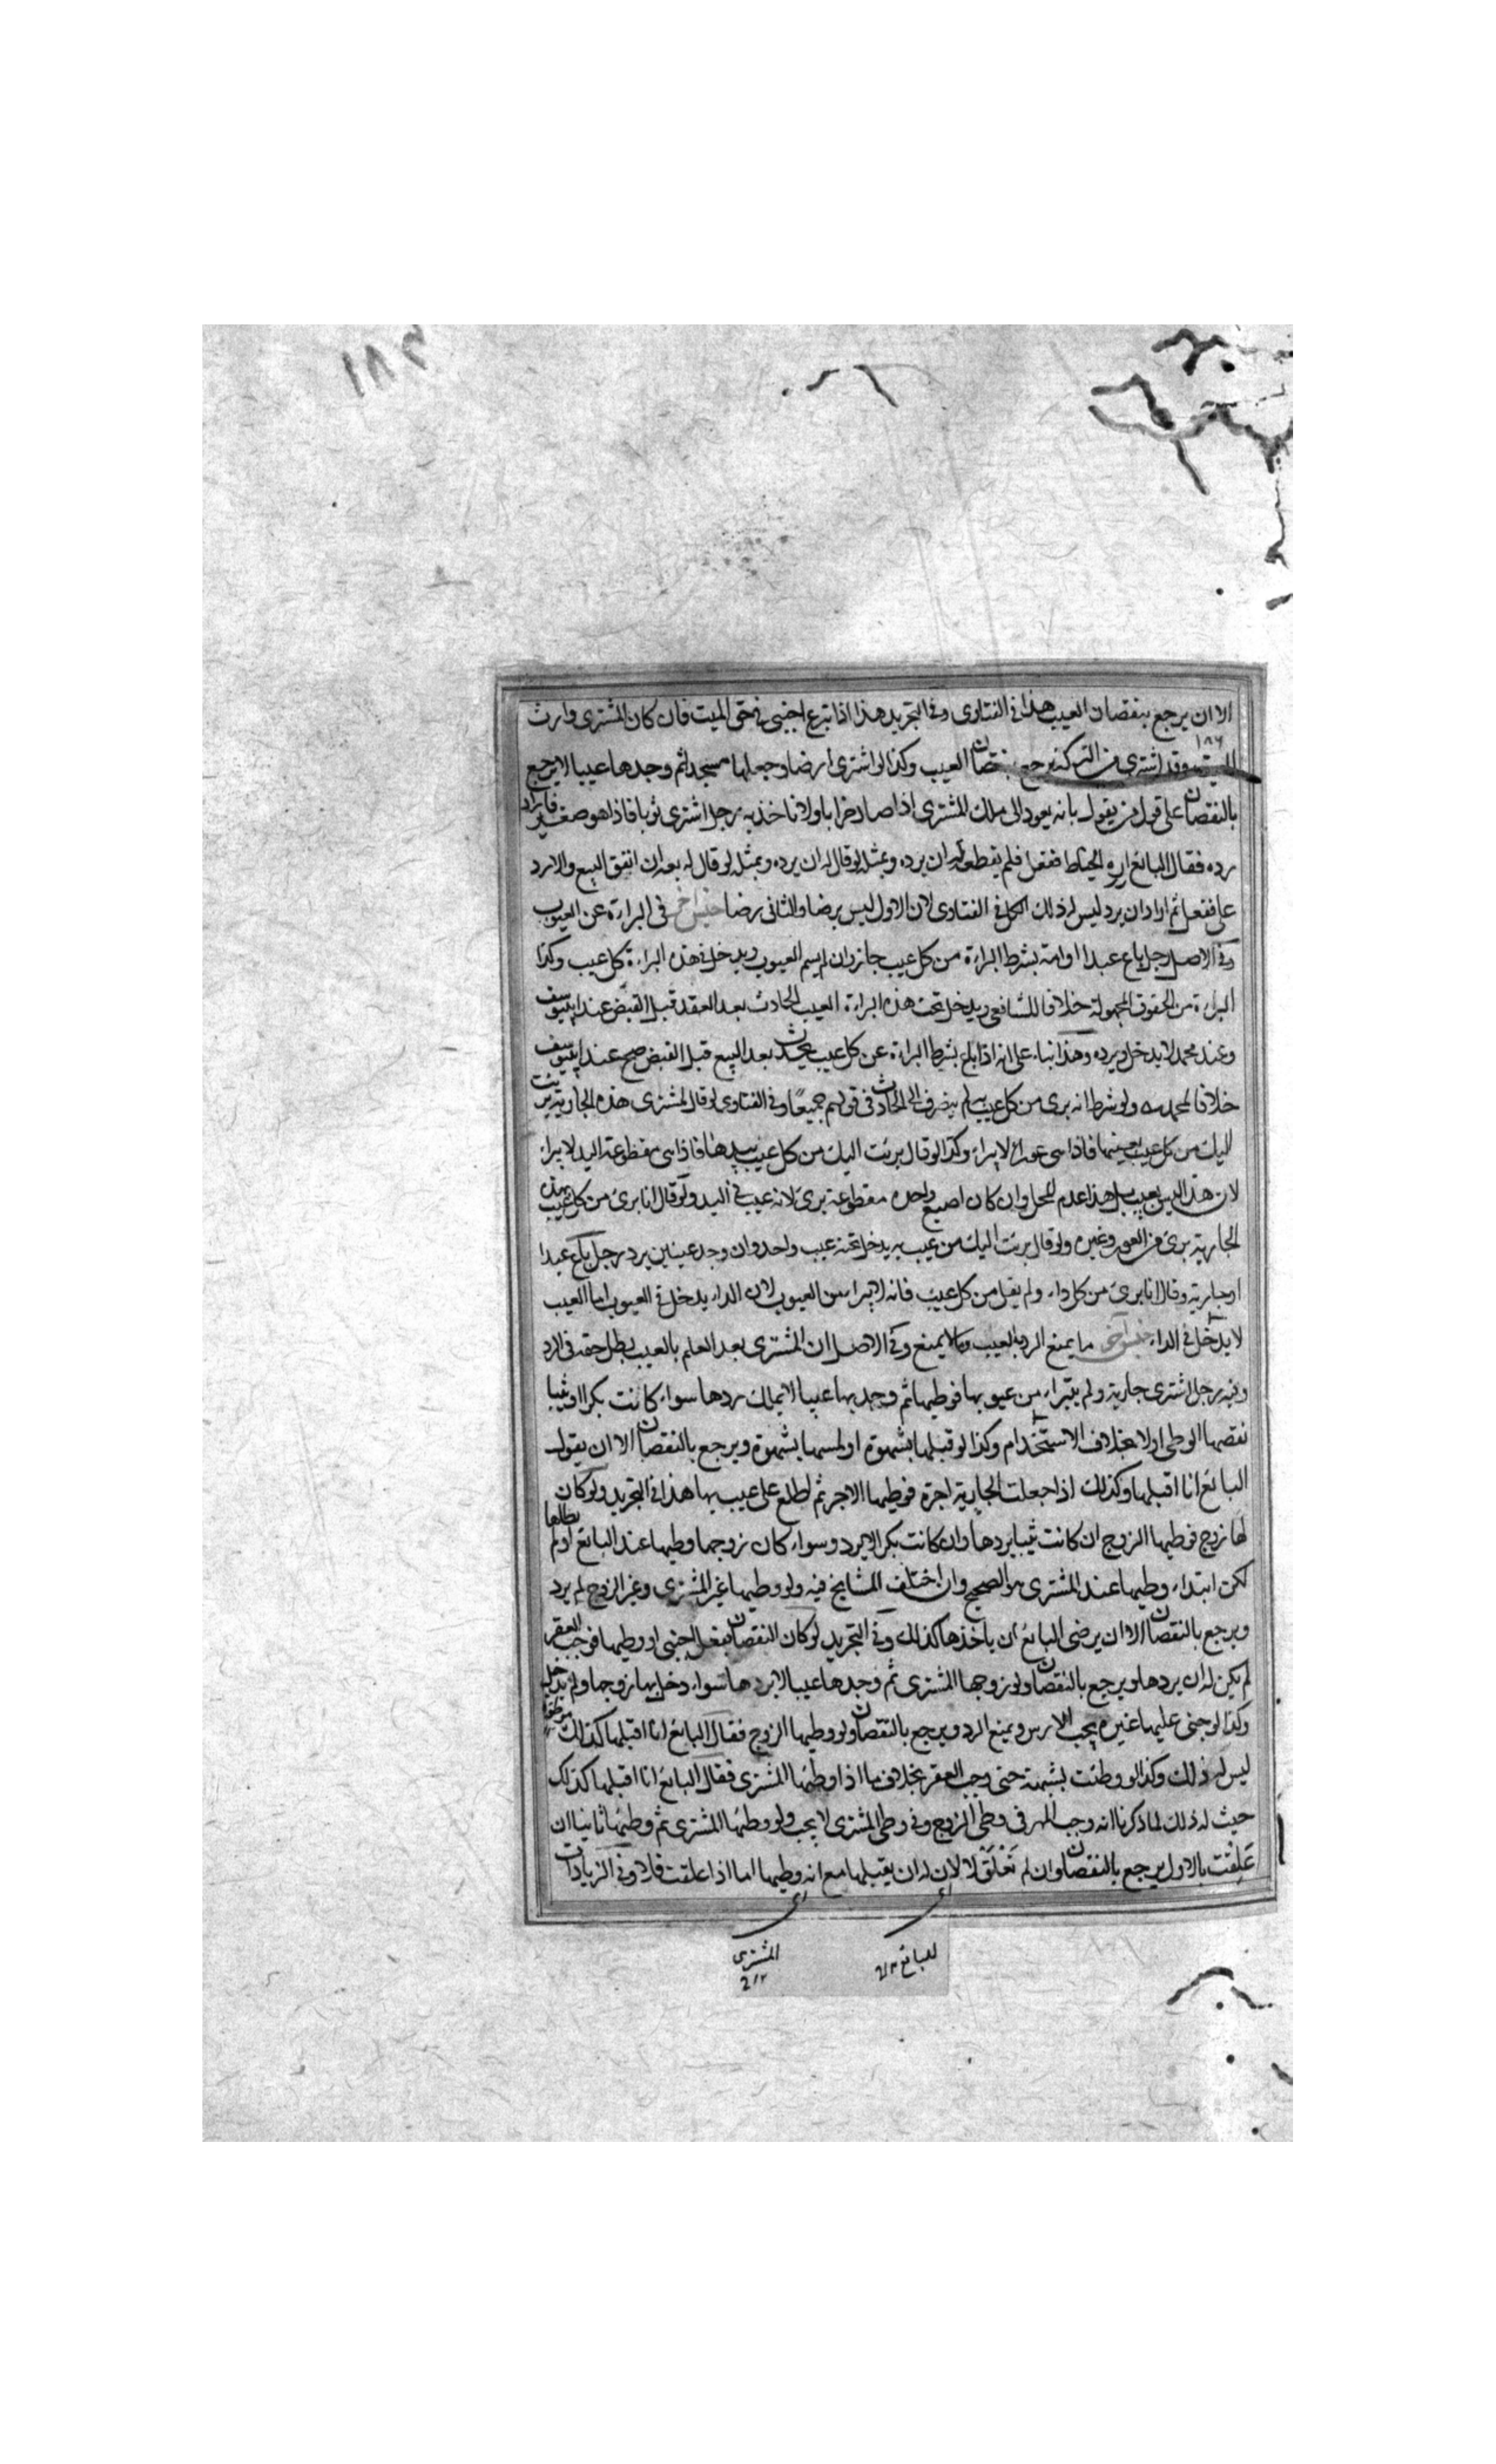 ١٨٣
الا ان يرجع بنقصان العيب هذا فى الفتاوى وفى التجريد هذا اذا تبرع اجنبى فى حق الميت فان كان المشترى وارث
١٨٦
الميت وقد اشترى من التركة يرجع بنقصان العيب وكذا لو اشترى ارضا وجعلها مسجدا ثم وجدها عيبا لا يرجع
بالنقصان على قول من يقول بانه يعود الى ملك المشترى اذا صار خرابا ولا ناخذ به رجل اشترى ثوبا فاذا هو صغير فاراد
رده فقال البائع اره الخياط ففعل فلم يقطعه له ان يرده وبمثله لو قال له ان يرده وبمثله لو قال له بعه ان انفق البيع والا رد
على ففعل ثم اراد ان يرد ليس له ذلك الكل فى الفتاوى لان الاول ليس برضا والثانى رضا جنس آخر فى البراءة عن العيوب
وفى الاصل رجل باع عبدا او امة بشرط البراءة من كل عيب جاز وان لم يسم العيوب ويدخل فى هذه البراءة كل عيب وكذا
البراءة من الحقوق المجهولة خلافا للشافعى ويدخل تحت هذه البراءة العيب الحادث بعد العقد قبل القبض عند ابى يوسف
وعند محمد لا يدخل ويرده وهذا بناء على انه اذا باع بشرط البراءة عن كل عيب يحدث بعد البيع قبل القبض صح عند ابى يوسف
خلافا لمحمد ولو شرط انه برى من كل عيب به لم ينصرف الى الحادث فى قولهم جميعًا وفى الفتاوى لو قال المشترى هذه الجارية برئت
اليك من كل عيب بعينها فاذا هى عوراء لا يبراء وكذا لو قال برئت اليك من كل عيب بيدها فاذا هى مقطوعة اليد لا يبراء
لان هذا ليس بعيب بل هذا عدم المحل وان كان اصبع واحده مقطوعة برئ لانه عيب فى اليد ولو قال انا برئ من كل عيب بهذه
الجارية برئ من العور وغيره ولو قال برئت اليك من عيب به يدخل تحته عيب واحد وان وجد عيبين يرد رجل باع عبدا
او جارية وقال انا برئ من كل داء ولم يقل من كل عيب فانه لا يبراء من العيوب لان الداء يدخل فى العيوب اما العيب
لا يدخل فى الداء جنس آخر ما يمنع الرد بالعيب وما لا يمنع وفى الاصل ان المشترى بعد العلم بالعيب بطل حقه فى الرد
وفيه رجل اشترى جارية ولم يتبراء من عيوبها فوطيها ثم وجد بها عيبا لا يملك ردها سواء كانت بكرا او ثيبا
نقصها الوطى او لا بخلاف الاستخدام وكذا لو قبلها بشهوة او لمسها بشهوة ويرجع بالنقصان الا ان يقول
البائع انا اقبلها وكذلك اذا جعلت الجارية اجرة فوطيها الاجر ثم اطلع على عيب بها هذا فى التجريد ولو كان
لها زوج فوطيها الزوج ان كانت ثيبا يردها وان كانت بكرا لا يرد وسواء كان زوجها وطيها عند البائع او لم يطاها
لكن ابتداء وطيها عند المشترى هو الصحيح وان اختلف المشايخ فيه ولو وطيها غير المشترى وغير الزوج لم يرد
ويرجع بالنقصان الا ان يرضى البائع ان ياخذها كذلك وفى التجريد لو كان النقصان بفعل اجنبى او وطيها فوجب العقر
لم يكن له ان يردها ويرجع بالنقصان ولو زوجها المشترى ثم وجدها عيبا لا يردها سواء دخل بها زوجها ولم يدخل
وكذا لو جنى عليها غيره يجب الارش ويمنع الرد ويرجع بالنقصان ولو وطيها الزوج فقال البائع انا اقبلها كذلك
ليس له ذلك وكذا لو وطئت بشبهة حتى وجب العقر بخلاف ما اذا وطئها المشترى فقال البائع انا اقبلها كذلك
حيث له ذلك لما ذكرنا انه وجب المهر فى وطى الزوج وفى وطى المشترى لا يجب ولو وطئها المشترى ثم وطئها ثانيا ان
عَلِقَت بالاول يرجع بالنقصان وان لم تَعْلَق لا لان له ان يقبلها مع انه وطيها اما اذا علقت فلا وفى الزيادات
للبائع
المشترى